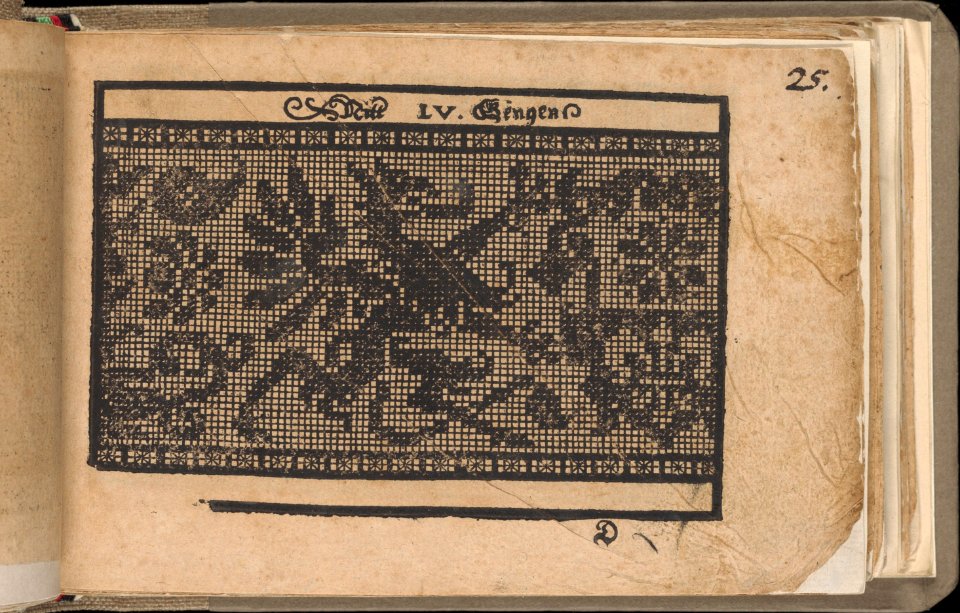 25.
Mit LV. Gengen
D